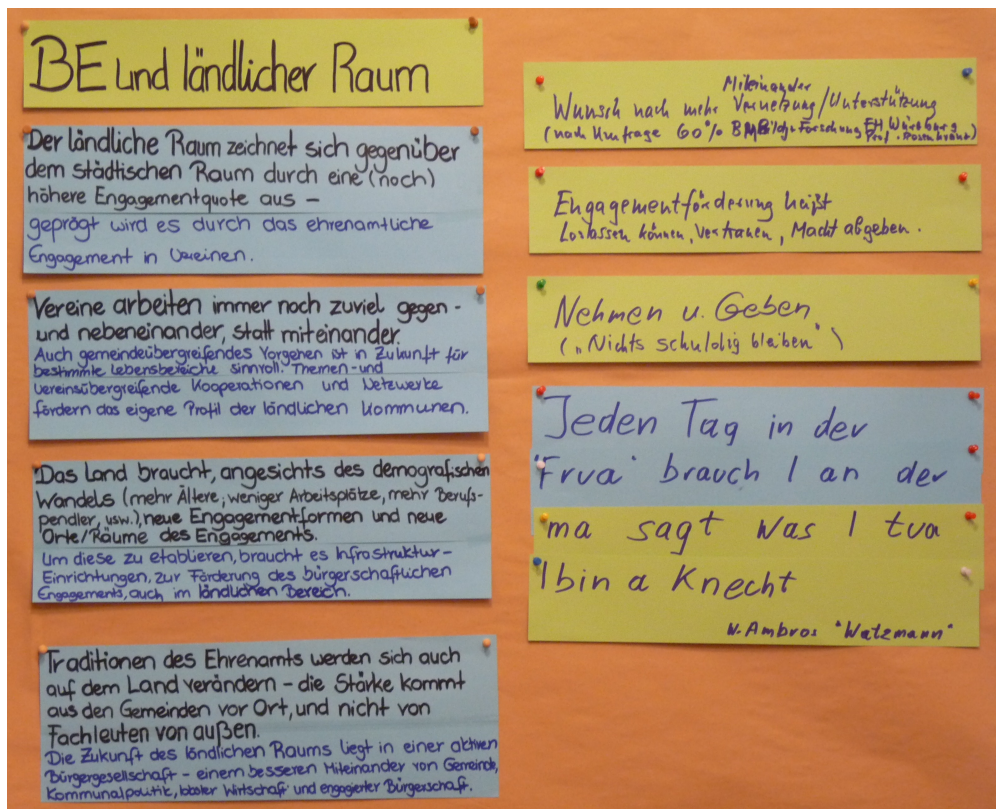 BE und ländlicher Raum
Der ländliche Raum zeichnet sich gegenüber
dem städtischen Raum durch eine (noch)
höhere Engagementquote aus –
geprägt wird es durch das ehrenamtliche
Engagement in Vereinen.
Vereine arbeiten immer noch zuviel gegen-
und nebeneinander, statt miteinander.
Auch gemeindeübergreifendes Vorgehen ist in Zukunft für
bestimmte Lebensbereiche sinnvoll. Themen- und
vereinsübergreifende Kooperationen und Netzwerke
fördern das eigene Profil der ländlichen Kommunen.
Das Land braucht, angesichts des demografischen
Wandels (mehr Ältere, weniger Arbeitsplätze, mehr Berufs-
pendler, usw.), neue Engagementformen und neue
Orte/Räume des Engagements.
Um diese zu etablieren, braucht es Infrastruktur-
Einrichtungen, zur Förderung des bürgerschaftlichen
Engagements, auch im ländlichen Bereich.
Traditionen des Ehrenamts werden sich auch
auf dem Land verändern – die Stärke kommt
aus den Gemeinden vor Ort, und nicht von
Fachleuten von außen.
Die Zukunft des ländlichen Raums liegt in einer aktiven
Bürgergesellschaft – einem besseren Miteinander von Gemeinde,
Kommunalpolitik, lokaler Wirtschaft und engagierter Bürgerschaft.
Miteinander
Wunsch nach mehr Vernetzung/Unterstützung
(nach Umfrage 60% Forschung FH Würzburg
Prof. Rosenkranz)
Engagementförderung heißt
Loslassen können, Vertrauen, Macht abgeben.
Nehmen u. Geben
(„Nichts schuldig bleiben“)
Jeden Tag in der
'Frua' brauch I an der
ma sagt was I tua
I bin a Knecht
W. Ambros "Watzmann"